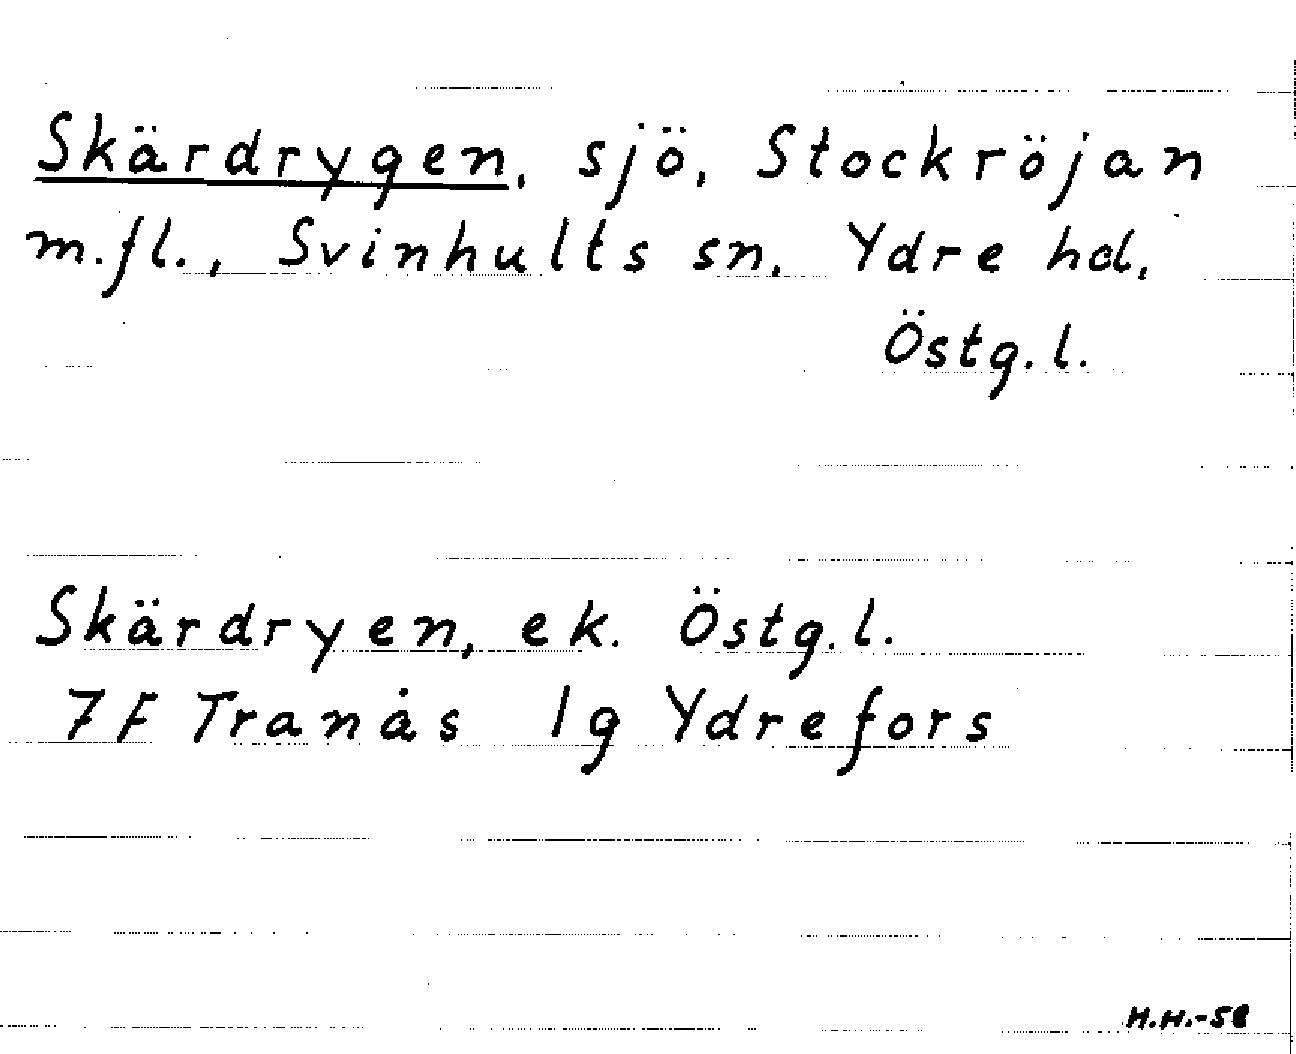 Skärdrygen, sjö, Stockröjan
m.fl., Svinhults sn, Ydre hd,
Östg.l.
Skärdryen, ek. Östg.l.
7F Tranås 1g Ydrefors
H.H.-58